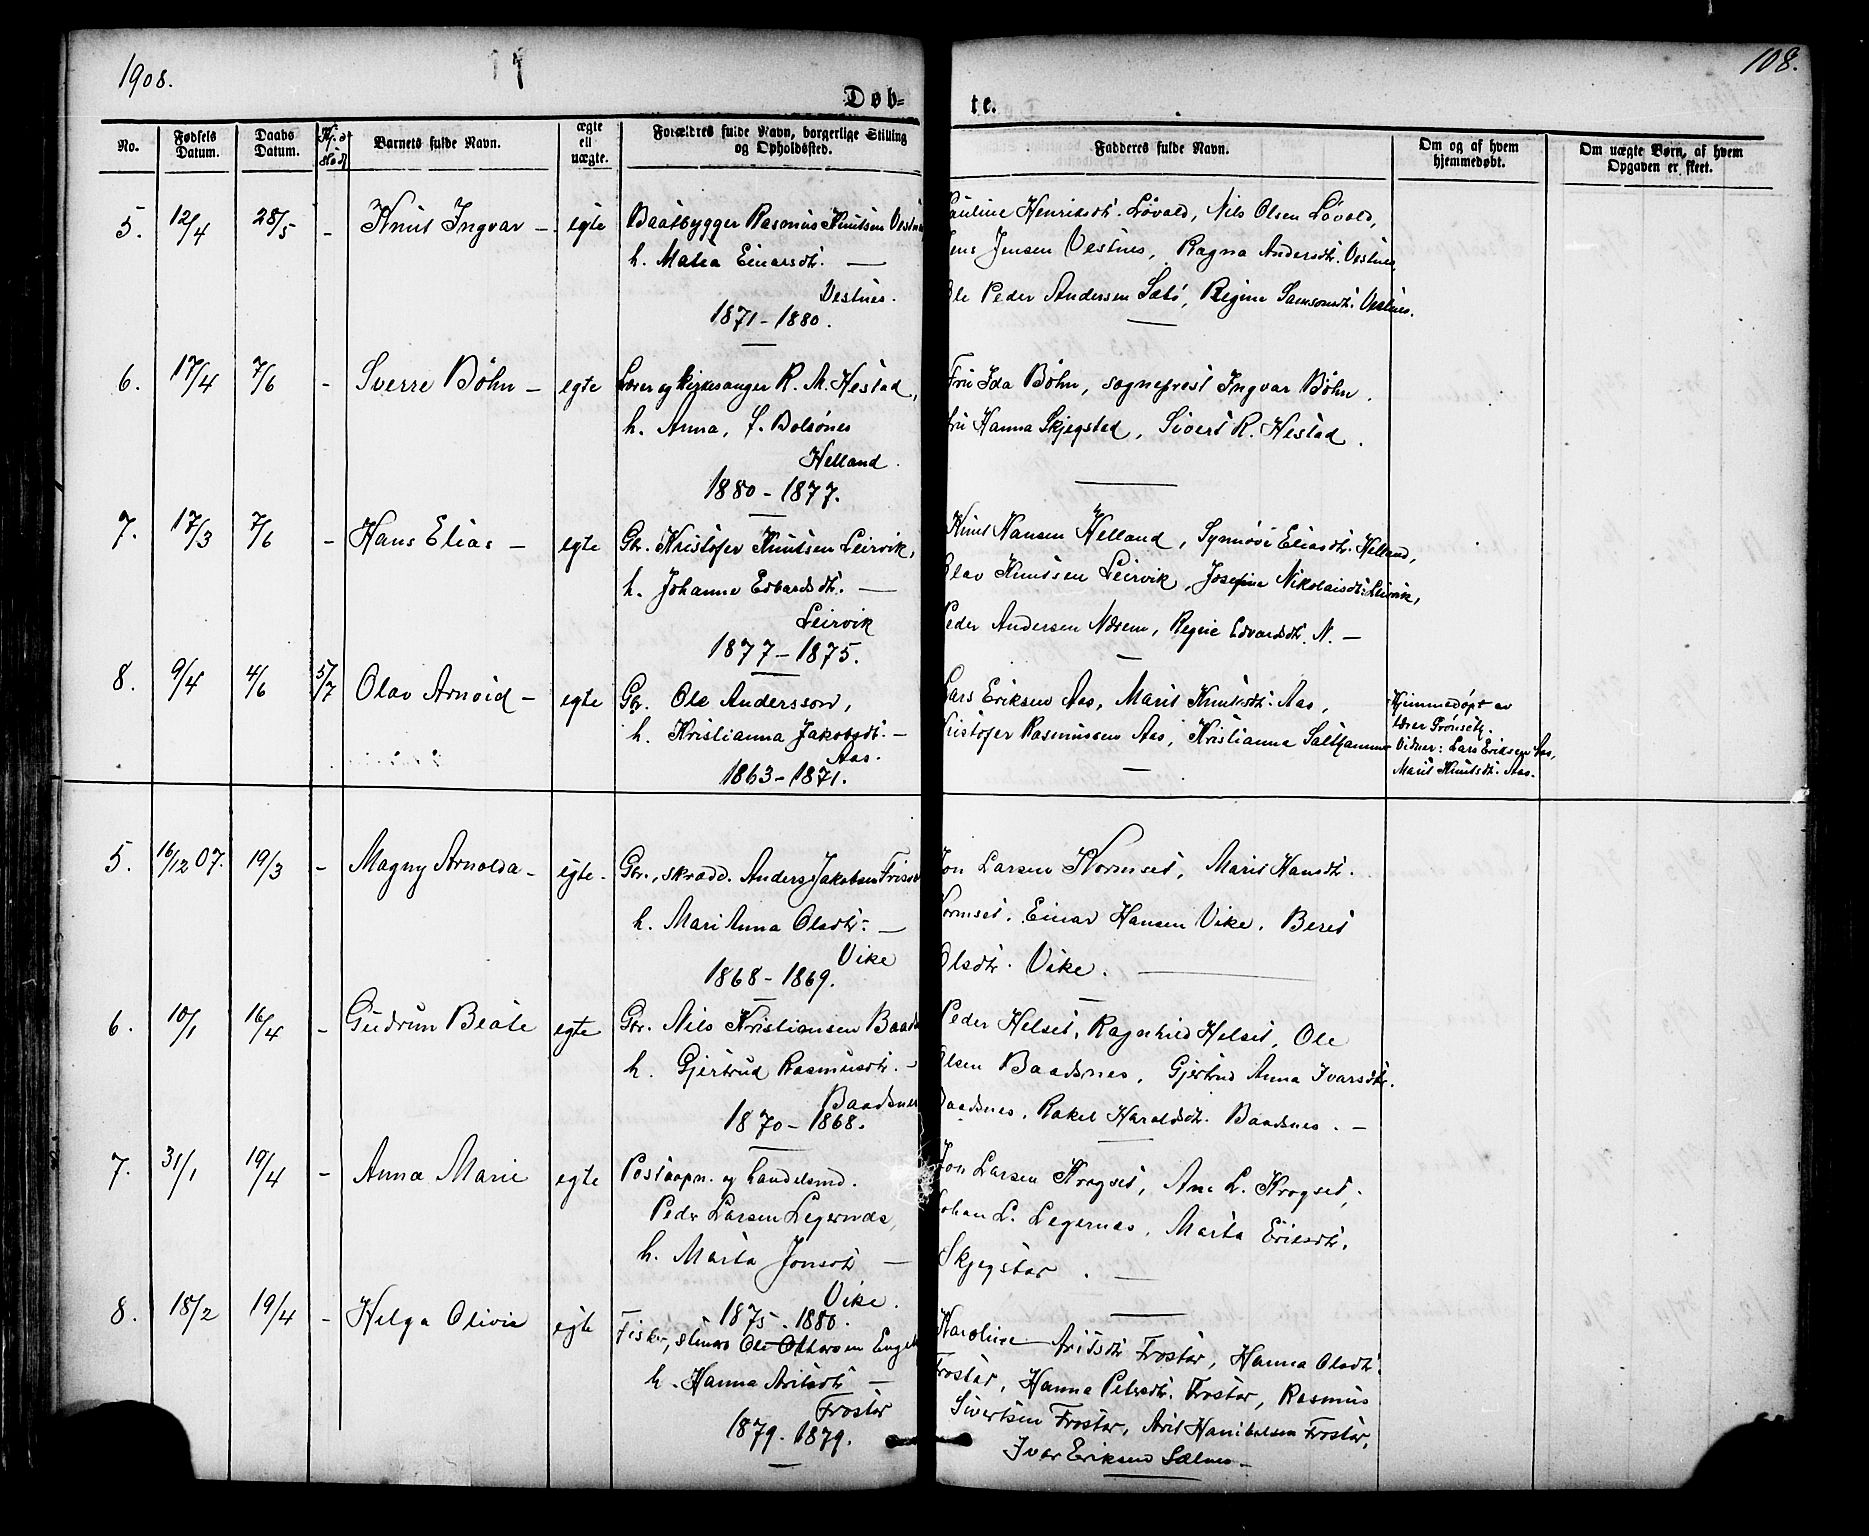 1908.
108.
Døb-
te.
No.
Fødsels Datum.
Daabs Datum.
Barnets fulde Navn.
ægte ell uægte.
Forældres fulde Navn, borgerlige Stilling og Opholdssted.
Fadderes fulde Navn.
Om og af hvem hjemmedøbt.
Om uægte Børn, af hvem Opgaven er skeet.
5. 12/4 28/5 - Knut Ingvar - egte Baatbygger Rasmus Knutsen Vestnes
h. Matea Einarsdt. —
Vestnes.
1871 - 1880.
Pauline Henriksdt. Løvold, Nils Olsen Løvold,
Jens Jensen Vestnes, Ragna Andersdt. Vestnes,
Ole Peder Andersen Sætø, Regine Samsonsdt. Vestnes.
6. 17/4 7/6 - Sverre Bøhn - egte Lærer og kirkesanger R. M. Hestad,
h. Anna, f. Bolsønes
Helland.
1880 - 1877.
Fru Ida Bøhn, sogneprest Ingvar Bøhn.
Fru Hanna Skjegstad, Sivert R. Hestad.
7. 17/3 7/6 - Hans Elias - egte Gbr. Kristofer Knutsen Leirvik,
h. Johanne Edvardsdt. —
Leirvik
1877 - 1875.
Knut Hansen Helland, Synnøve Eliasdt. Helland,
Olav Knutsen Leirvik, Josefine Nikolaisdt. Leirvik,
Peder Andersen Nærem, Regine Edvardsdt. N. —
8. 9/4 4/6 5/7 Olav Arnvid - egte Gbr. Ole Andersson,
h. Kristianna Jakobsdt. —
Aas.
1863 - 1871.
Lars Eriksen Aas, Marit Knutsdt. Aas,
Kristofer Rasmussen Aas, Kristianna Salthammer
Hjemmedøpt av
lærer Grønseth.
Vidner: Lars Eriksen Aas,
Marit Knutsdt. Aas.
5. 16/12 07. 19/3 - Magny Arnolda - egte. Gbr., skradd. Anders Jakobsen
h. Mari Anna Olsdt. —
Vike
1868 - 1869.
Jon Larsen Kormset, Marit Hansdt.
Kormset, Einar Hansen Vike, Beret
Olsdt. Vike. —
6. 10/1 16/4 - Gudrun Beate egte Gbr. Nils Kristiansen Baadsnes
h. Gjertrud Rasmusdt. —
Baadsnes
1870 - 1868.
Peder Helset, Ragnhild Helset, Ole
Olsen Baadsnes, Gjertrud Anna Ivarsdt.
Baadsnes, Rakel Haraldsdt. Baadsnes. —
7. 31/1 19/4 - Anna Marie egte Postaapn. og handelsmd.
Peder Larsen Legernæs,
h. Marta Jonsdt —
Vike.
1875. 1880.
Jon Larsen Krogset, Ane L. Krogset,
Johan L. Legernæs, Marta Eriksdt.
Skjegstad. —
8. 18/2 19/4 - Helga Olivie egte Fisker, Ole Ottersen
h. Hanna Aritsdt —
Frostar
1879. 1879.
Karoline Aritsdt Frostar, Hanna Olsdt.
Frostar, Hanna Petersdt. Frostar, Rasmus
Sivertsen Frostar, Arit Hanibalsen Frostar,
Ivar Eriksen Salnes —